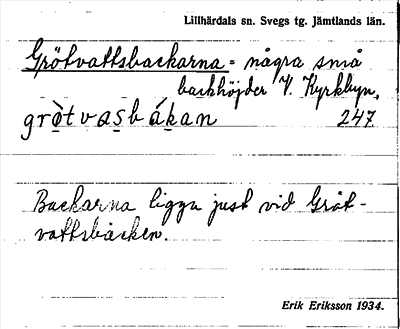 Lillhärdals sn. Svegs tg. Jämtlands län.
Grötvattsbackarna = några små
backhöjder V. Kyrkbyn,
grò̀tvasbákan 247
Backarna ligga just vid Gröt-
vattsbäcken.
Erik Eriksson 1934.